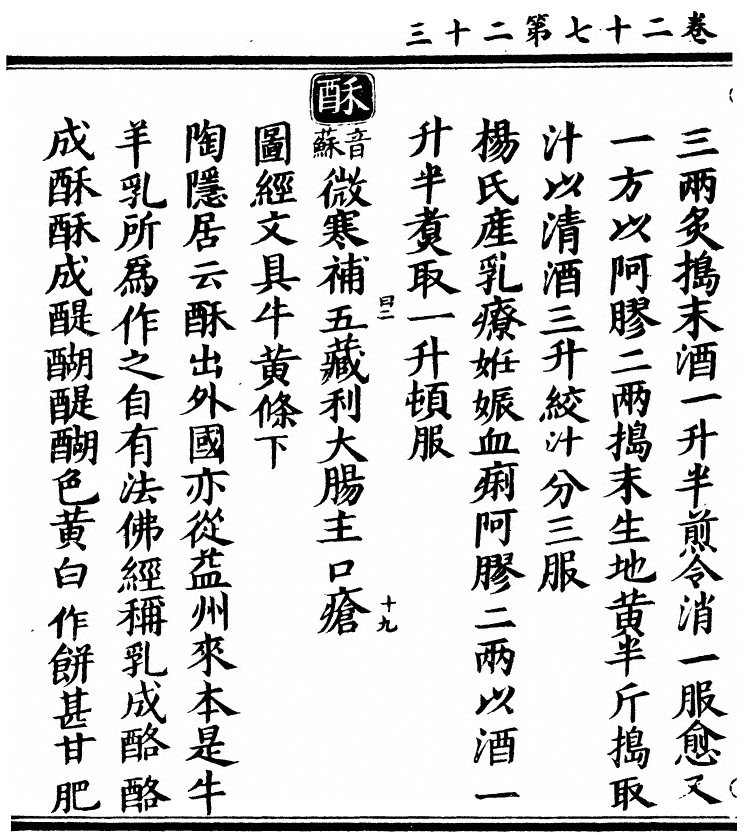 卷二十七第二十三
三兩炙搗末酒一升半煎令消一服愈又
一方以阿膠二兩搗末生地黃半斤搗取
汁以清酒三升絞汁分三服
楊氏產乳療姙娠血痢阿膠二兩以酒一
升半煑取一升頓服
酥音蘇微寒補五藏利大腸主口瘡
曰二
十九
圖經文具牛黃條下
陶隱居云酥出外國亦從益州來本是牛
羊乳所爲作之自有法佛經稱乳成酪酪
成酥酥成醍醐醍醐色黃白作餅甚甘肥